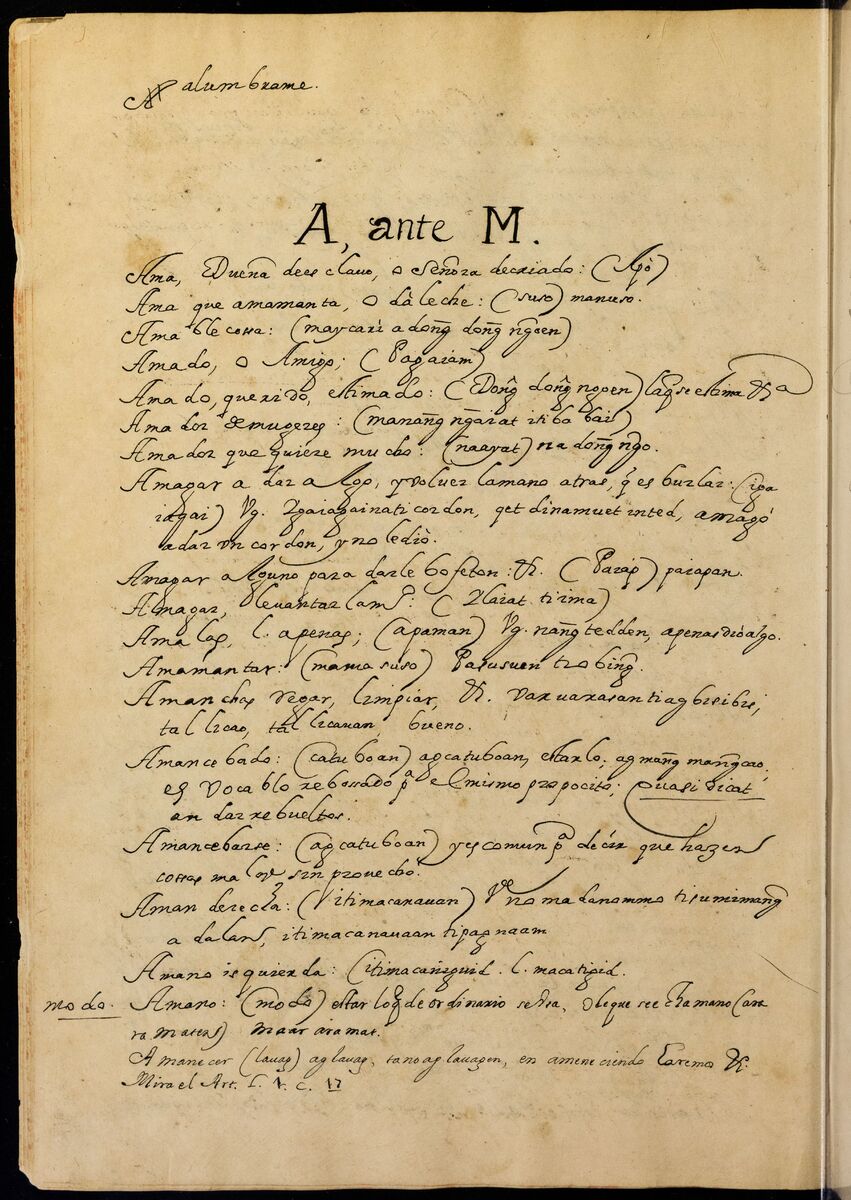 alumbrame.
A, ante M.
Ama, Dueña de esclavo, o Señora de criado: (Apò)
Ama que amamanta, o dà leche: (suso) manuso.
Amable cossa: (maycari a dong̃ dong̃ ng̃oen)
Amado, o Amigo; (Pagaiam)
Amado, querido, estimado: (Dong̃ dong̃ nopen) la q̃ se estima &a
Amador de mugeres: (manang̃ ng̃arat iti babai)
Amador que quiere mucho: (naayat) na dong̃ ng̃o.
Amagar a dar algo, y volver la mano atras, q̃ es burlar: (iga
iagai) Vg. Ygaiagainati cordon, qet dinamuet inted, amagó
a dar vn cordon, y no le diò.
Amagar alguno para darle bofeton: &. (Parap) parapan.
Amagar, levantar la mº: (Ylaiat ti ima)
Amalas, l. apenas; (apaman) Vg. nang̃tedden, apenas dió algo.
Amamantar: (mamasuso) Pasusuen
Amanchas regar, limpiar, &. varuarasan tiag bisibis,
tallicao, tallicauan, bueno.
Amancebado: (catuboan) agcatuboan, estarlo, agmang̃mang̃cao,
es vocablo rebossado pª el mismo proposito; Quasi dicat
andar rebueltos.
Amancebarse: (agcatuboan) y es comun pª decir que hazen
cossas malas sin provecho.
Aman derecha: (itimacanauan) Vᵉ no madanommo tisumimang̃
a dalan, itimacanauaan tipagnaam
Amano isquierda: (itimacañguid. l. macatigid.
modo. Amano: (modo) estar lo q̃ de ordinario se usa, o le que see cha mano (ar
ra mateng) maar aramat.
Amanecer (lauag) aglauag, tano aglauagen, en ameneciendo Earemos &.
Mira el Art. L. 1. C. 17